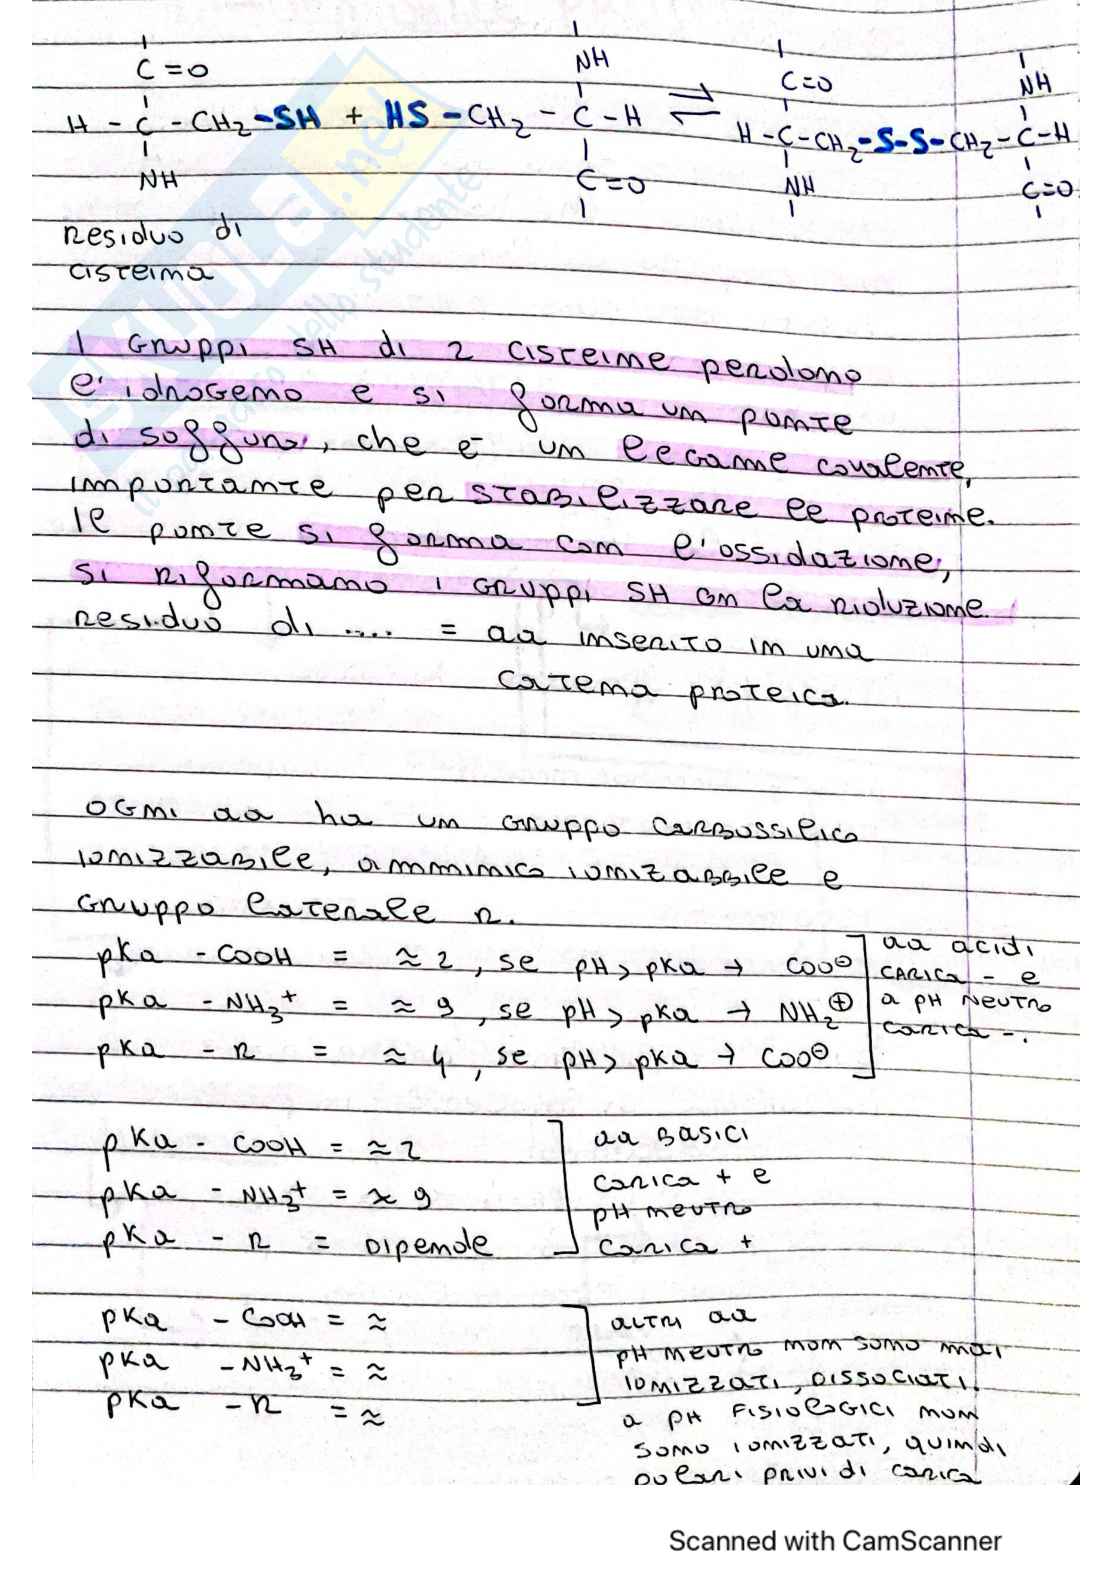 C=O NH C=O NH
H - C - CH2-SH + HS-CH2 - C-H ⇌ H-C-CH2-S-S-CH2-C-H
NH C=O NH C=O
residuo di
cisteina
I GRUPPI SH di 2 cisteine perdono
l'idrogeno e si forma un ponte
di solfuro, che è un legame covalente,
importante per stabilizzare le proteine.
Il ponte si forma con l'ossidazione,
si riformano i gruppi SH on la riduzione.
residuo di .... = aa inserito in una
catena proteica.
OGNI aa ha un gruppo carbossilico
ionizzabile, amminico ionizabbile e
gruppo laterale R.
pKa - COOH = ≈ 2, se pH > pKa → COO⊖
pKa - NH3+ = ≈ 9, se pH > pKa → NH2⊕
pKa - R = ≈ 4, se pH > pKa → COO⊖
aa acidi
carica - e
a pH neutro
carica -.
pKa - COOH = ≈ 2
pKa - NH3+ = ≈ 9
pKa - R = Dipende
aa basici
carica + e
pH neutro
carica +
pKa - COOH = ≈
pKa - NH3+ = ≈
pKa - R = ≈
altri aa
pH neutro non sono mai
ionizzati, dissociati.
a pH fisiologici non
sono ionizzati, quindi
polari privi di carica
Scanned with CamScanner